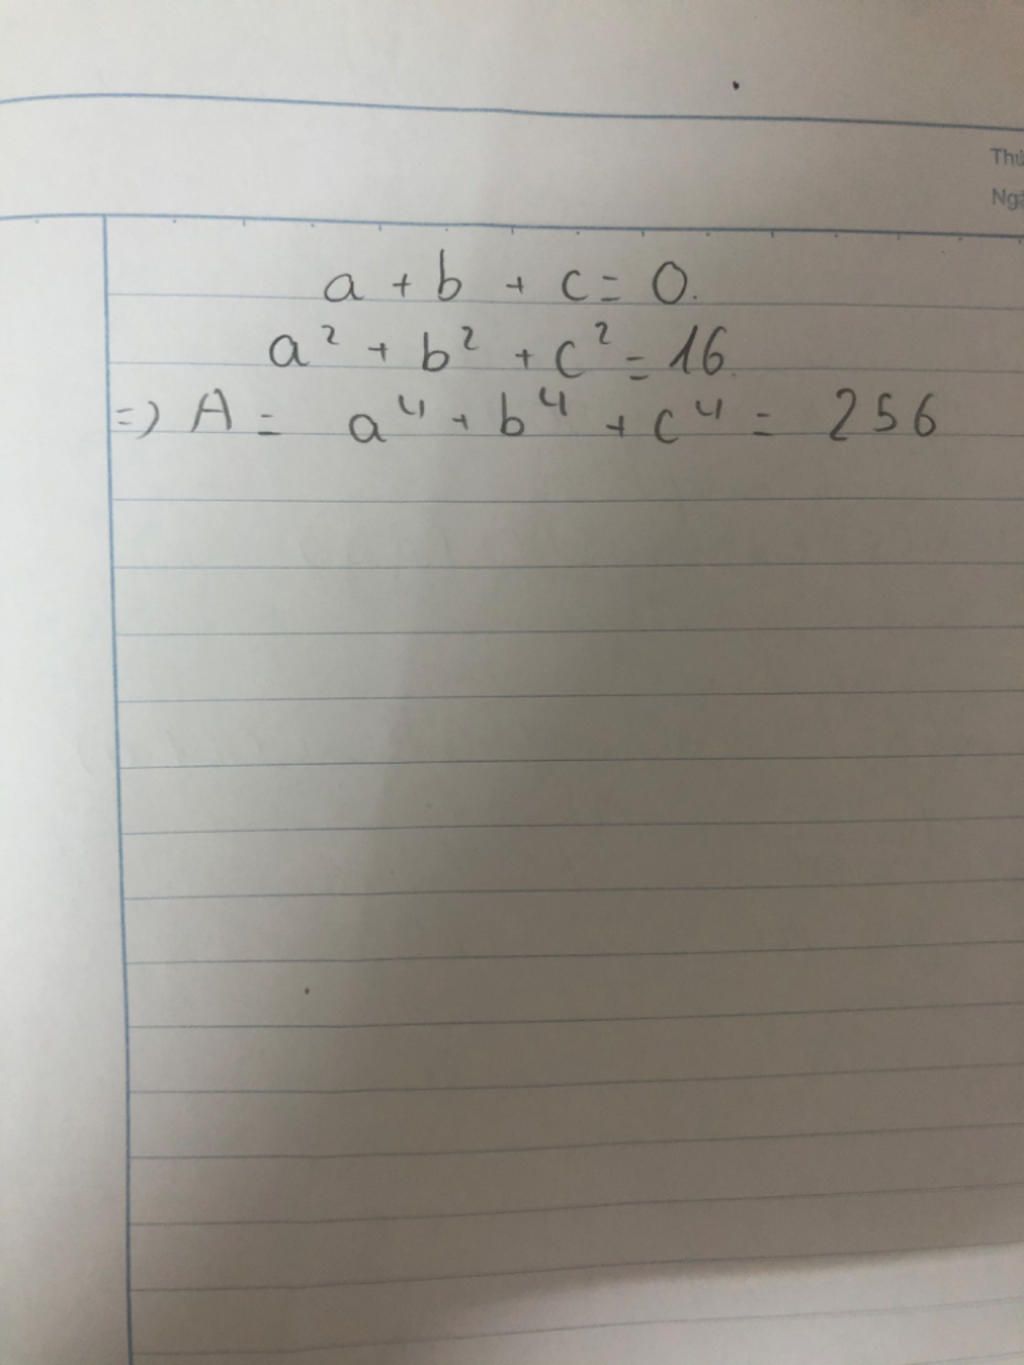 Thứ
Ngà
a + b + c = 0.
a² + b² + c² = 16.
=) A = a⁴ + b⁴ + c⁴ = 256